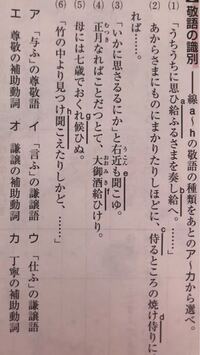 敬語の識別 ――線a～hの敬語の種類をあとのア～カから選べ。
(1)「うちうちに思ひ給ふるさまを奏し給へ。」
(2) あからさまにものにまかりたりしほどに、侍るところの焼け侍りに
ければ、……」
(3)「いかに思さるるにか」と右近も聞こゆ。
(4) 正月なればことだつとて、大御酒給ひけり。
(5) 母には七歳でおくれ候ひぬ。
(6)「竹の中より見つけ聞こえたりしかど、……」
ア 「与ふ」の尊敬語 イ 「言ふ」の謙譲語 ウ 「仕ふ」の謙譲語
エ 尊敬の補助動詞 オ 謙譲の補助動詞 カ 丁寧の補助動詞